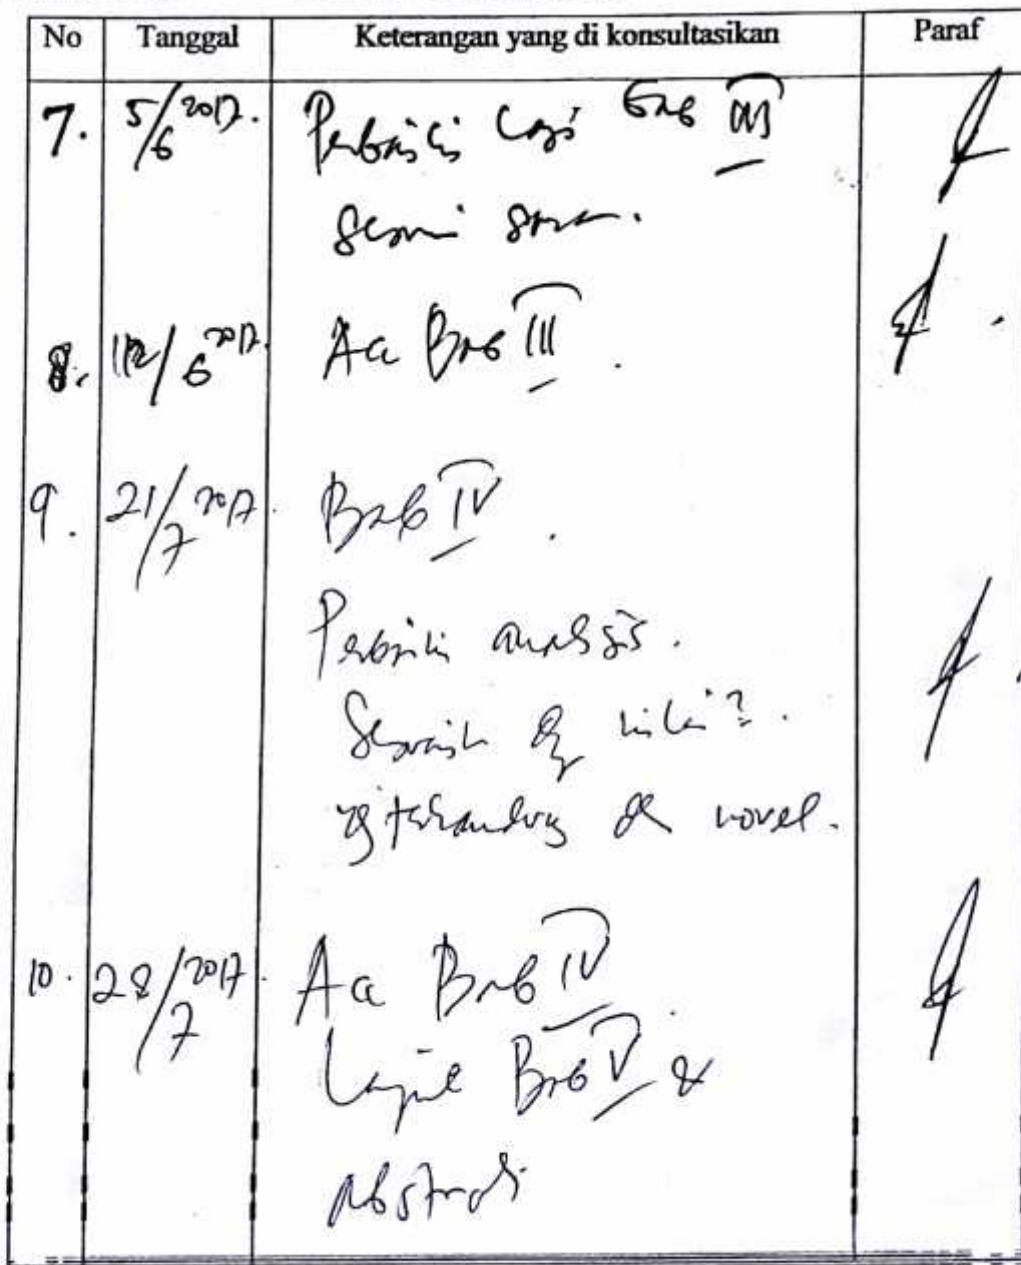 No Tanggal Keterangan yang di konsultasikan Paraf
7. 5/6 2017. Perbaiki lagi Bab III
sesuai saran.
8. 12/6 2017. Acc Bab III.
9. 21/7 2017. Bab IV.
Perbaiki analisis.
Sesuaikan dg nilai2.
yg terkandung dlm novel.
10. 28/7 2017. Acc Bab IV
Lanjut Bab V &
Abstrak